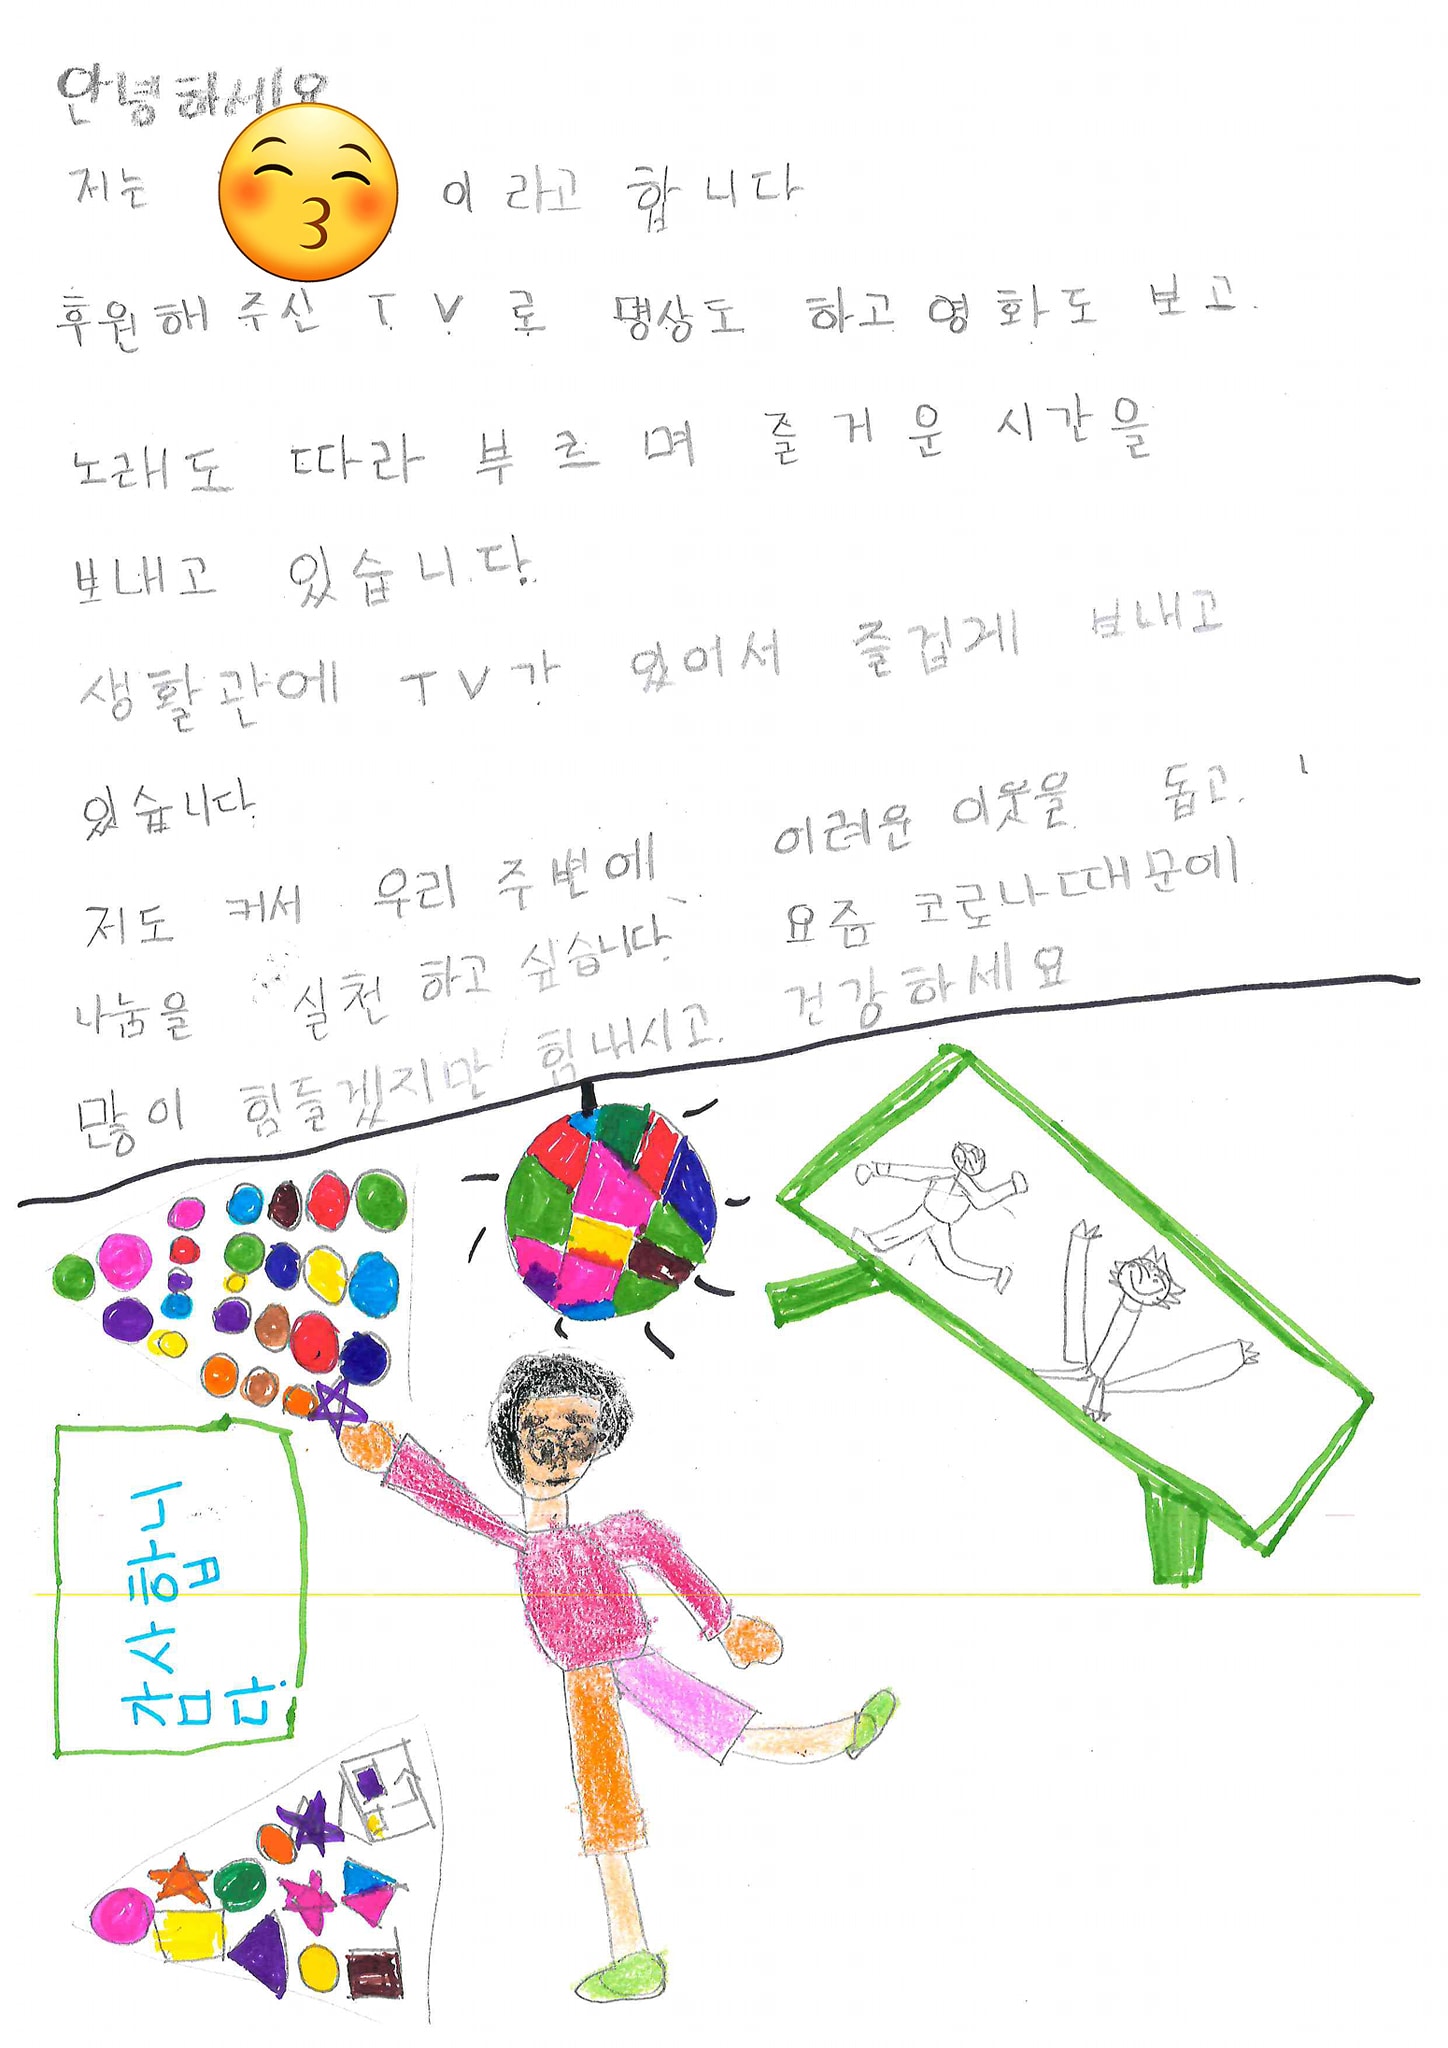 안녕하세요
저는 이라고 합니다
후원해 주신 TV로 명상도 하고 영화도 보고.
노래도 따라 부르며 즐거운 시간을
보내고 있습니다.
생활관에 TV가 있어서 즐겁게 보내고
있습니다.
저도 커서 우리 주변에 어려운 이웃을 돕고.
나눔을 실천 하고 싶습니다. 요즘 코로나 때문에
많이 힘들겠지만 힘내시고. 건강하세요
감사합니
다.